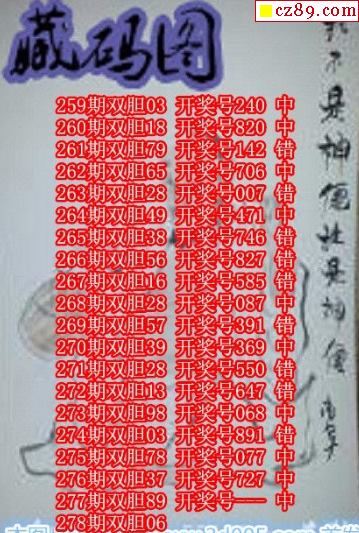 cz89.com
藏码图
259期双胆03 开奖号240 中
260期双胆18 开奖号820 中
261期双胆79 开奖号142 错
262期双胆65 开奖号706 中
263期双胆28 开奖号007 错
264期双胆49 开奖号471 中
265期双胆38 开奖号746 错
266期双胆56 开奖号827 错
267期双胆16 开奖号585 错
268期双胆28 开奖号087 中
269期双胆57 开奖号391 错
270期双胆39 开奖号369 中
271期双胆28 开奖号550 错
272期双胆13 开奖号647 错
273期双胆98 开奖号068 中
274期双胆03 开奖号891 错
275期双胆78 开奖号077 中
276期双胆37 开奖号727 中
277期双胆89 开奖号--- 中
278期双胆06
不是神便是神